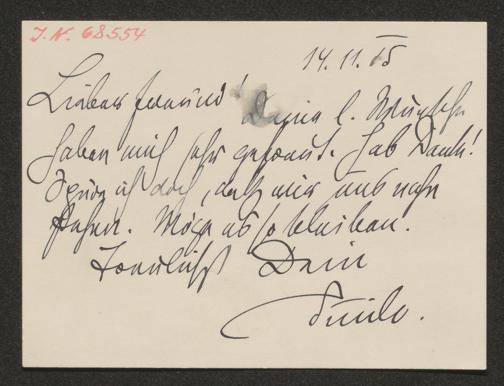 I.N. 68554
14.11.05
Lieber Freund! Deine l. Wünsche
haben mich sehr gefreut. Hab Dank!
Spüre ich doch, daß wir uns nahe
stehen. Möge es so bleiben.
Freulichst Dein